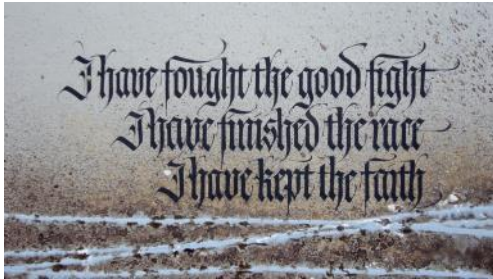 I have fought the good fight
I have finished the race
I have kept the faith